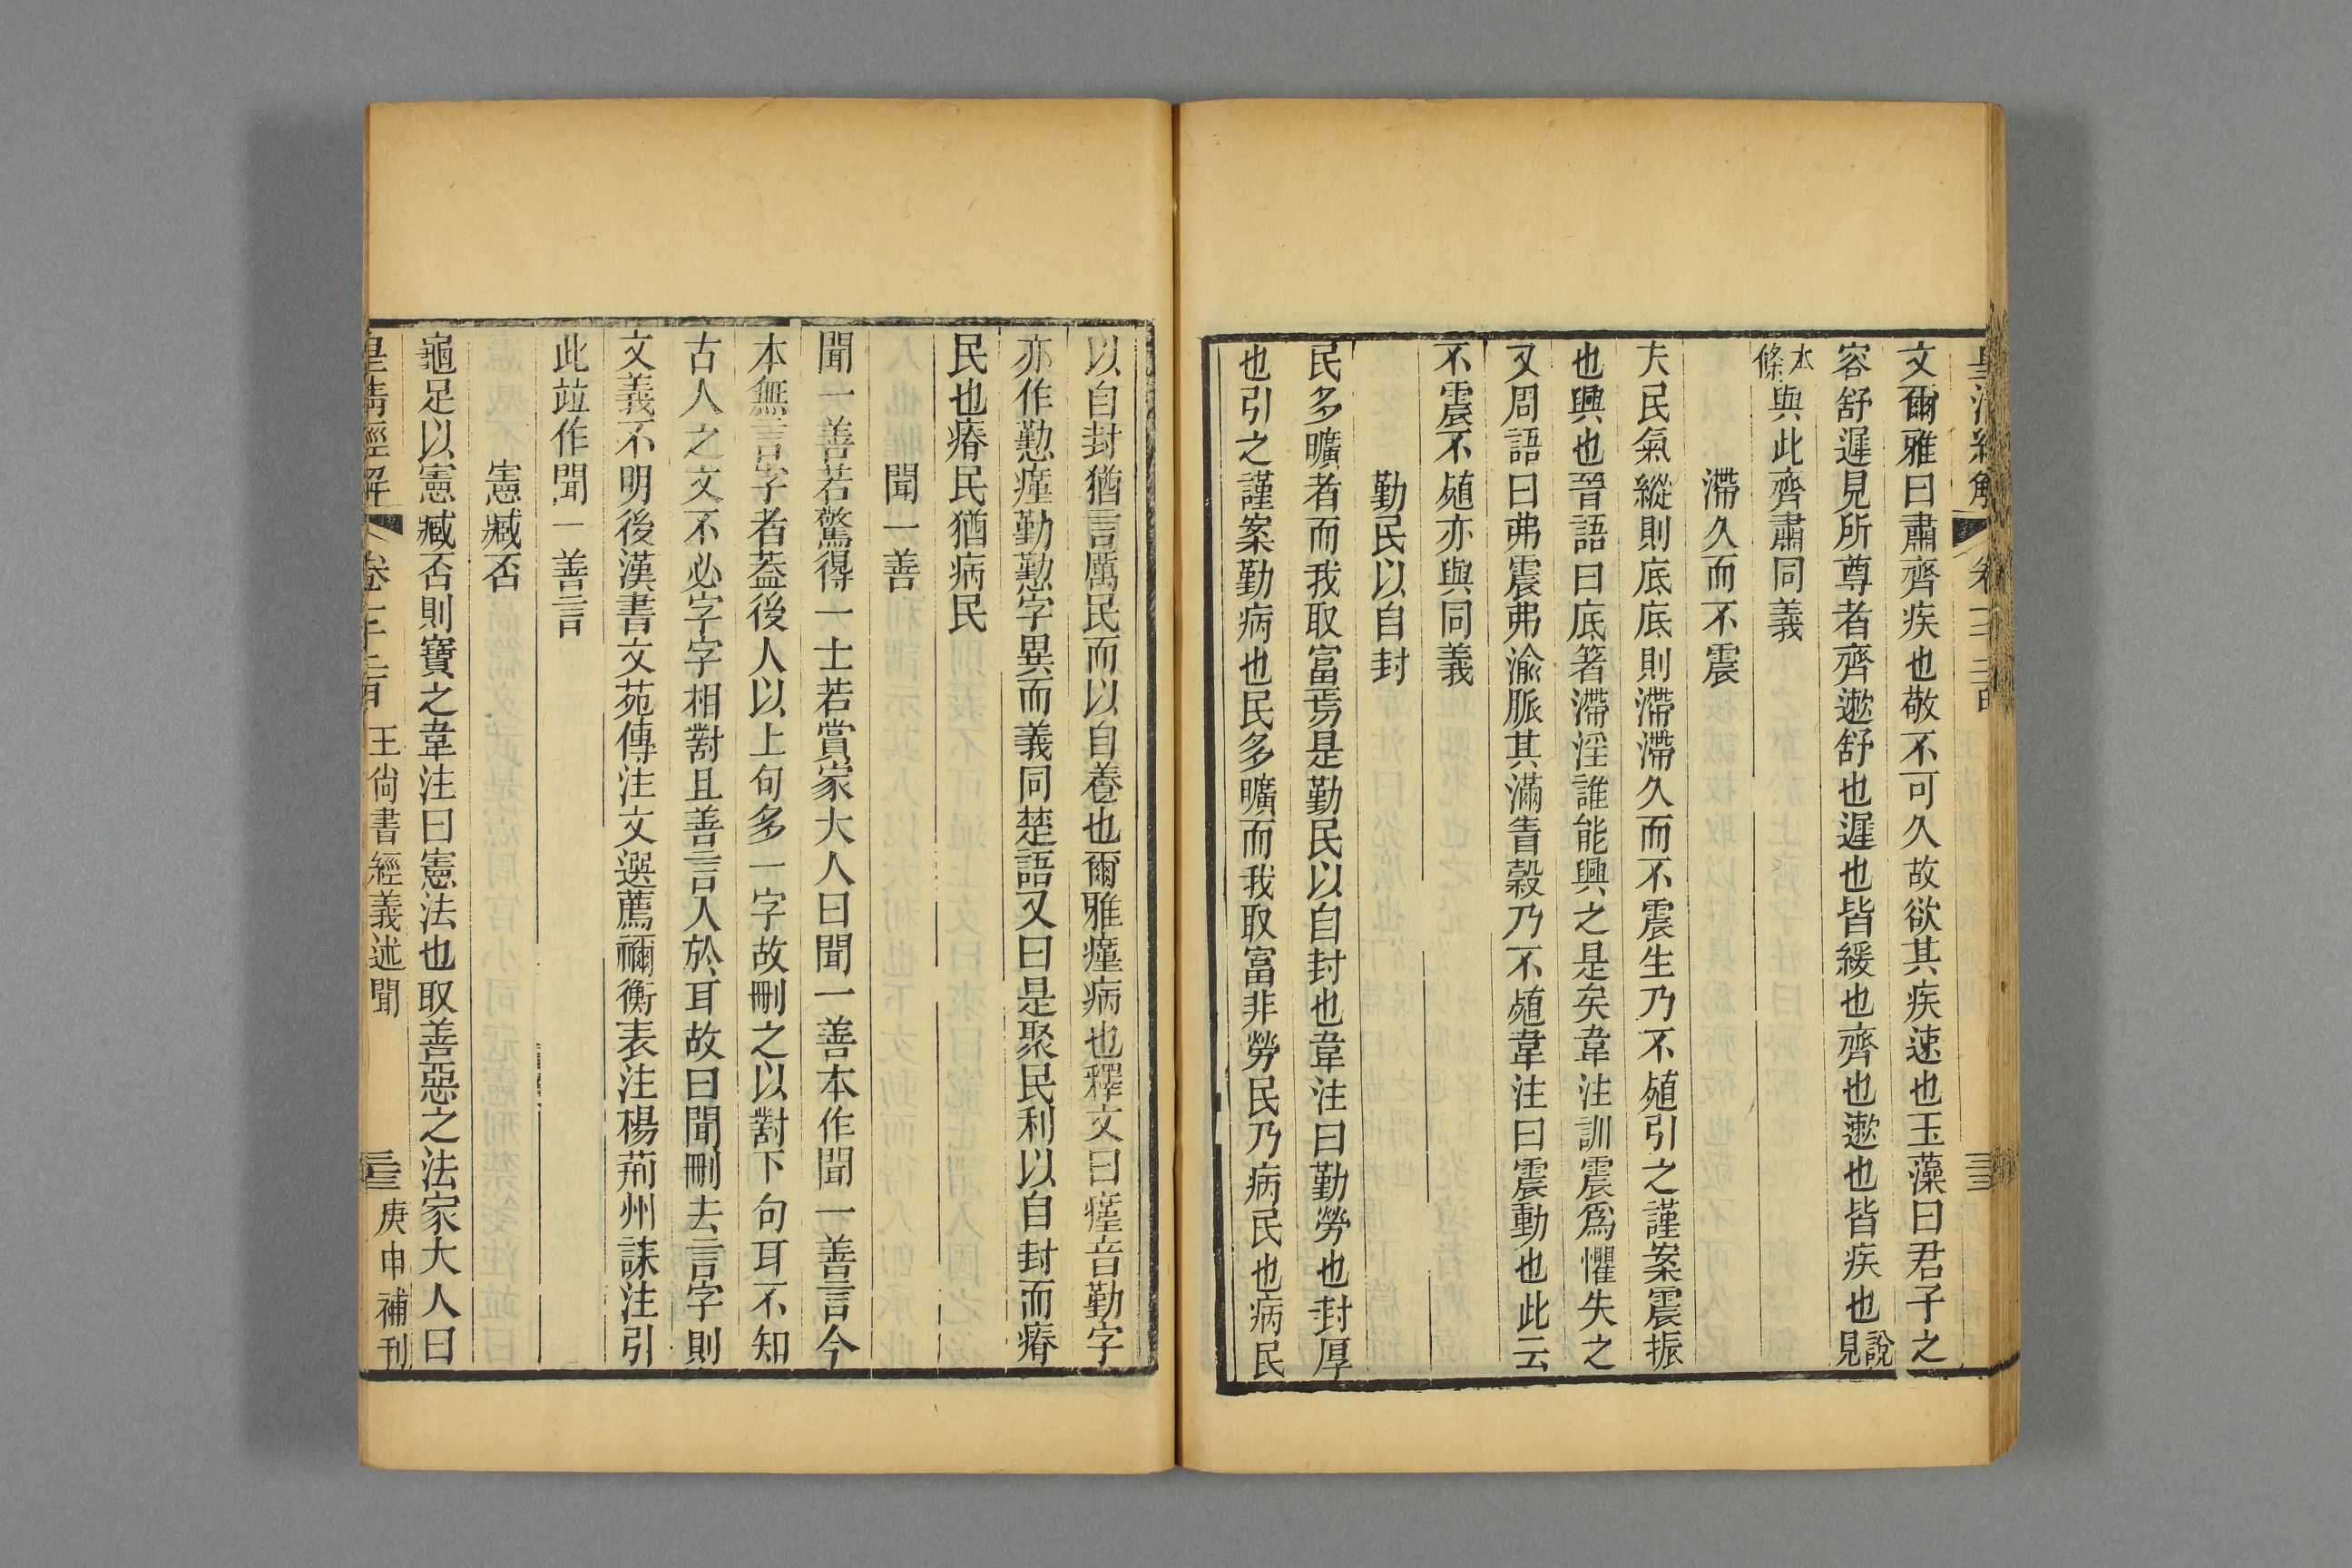 皇清經解 卷
文爾雅曰肅齊疾也敬不可久故欲其疾速也玉藻曰君子之
容舒遲見所尊者齊遬舒也遲也皆緩也齊也遬也皆疾也說見
本條與此齊肅同義
滯久而不震
夫民氣縱則底底則滯滯久而不震生乃不殖引之謹案震振
也興也晉語曰底箸滯淫誰能興之是矣韋注訓震爲懼失之
又周語曰弗震弗渝脈其滿眚穀乃不殖韋注曰震動也此云
不震不殖亦與同義
勤民以自封
民多曠者而我取富焉是勤民以自封也韋注曰勤勞也封厚
也引之謹案勤病也民多曠而我取富非勞民乃病民也病民
以自封猶言厲民而以自養也爾雅瘽病也釋文曰瘽音勤字
亦作懃瘽勤懃字異而義同楚語又曰是聚民利以自封而瘠
民也瘠民猶病民
聞一善
聞一善若驚得一士若賞家大人曰聞一善本作聞一善言今
本無言字者葢後人以上句多一字故刪之以對下句耳不知
古人之文不必字字相對且善言入於耳故曰聞刪去言字則
文義不明後漢書文苑傳注文選薦禰衡表注楊荊州誄注引
此竝作聞一善言
憲臧否
龜足以憲臧否則寶之韋注曰憲法也取善惡之法家大人曰
皇清經解 卷 王尙書經義述聞 庚申補刊